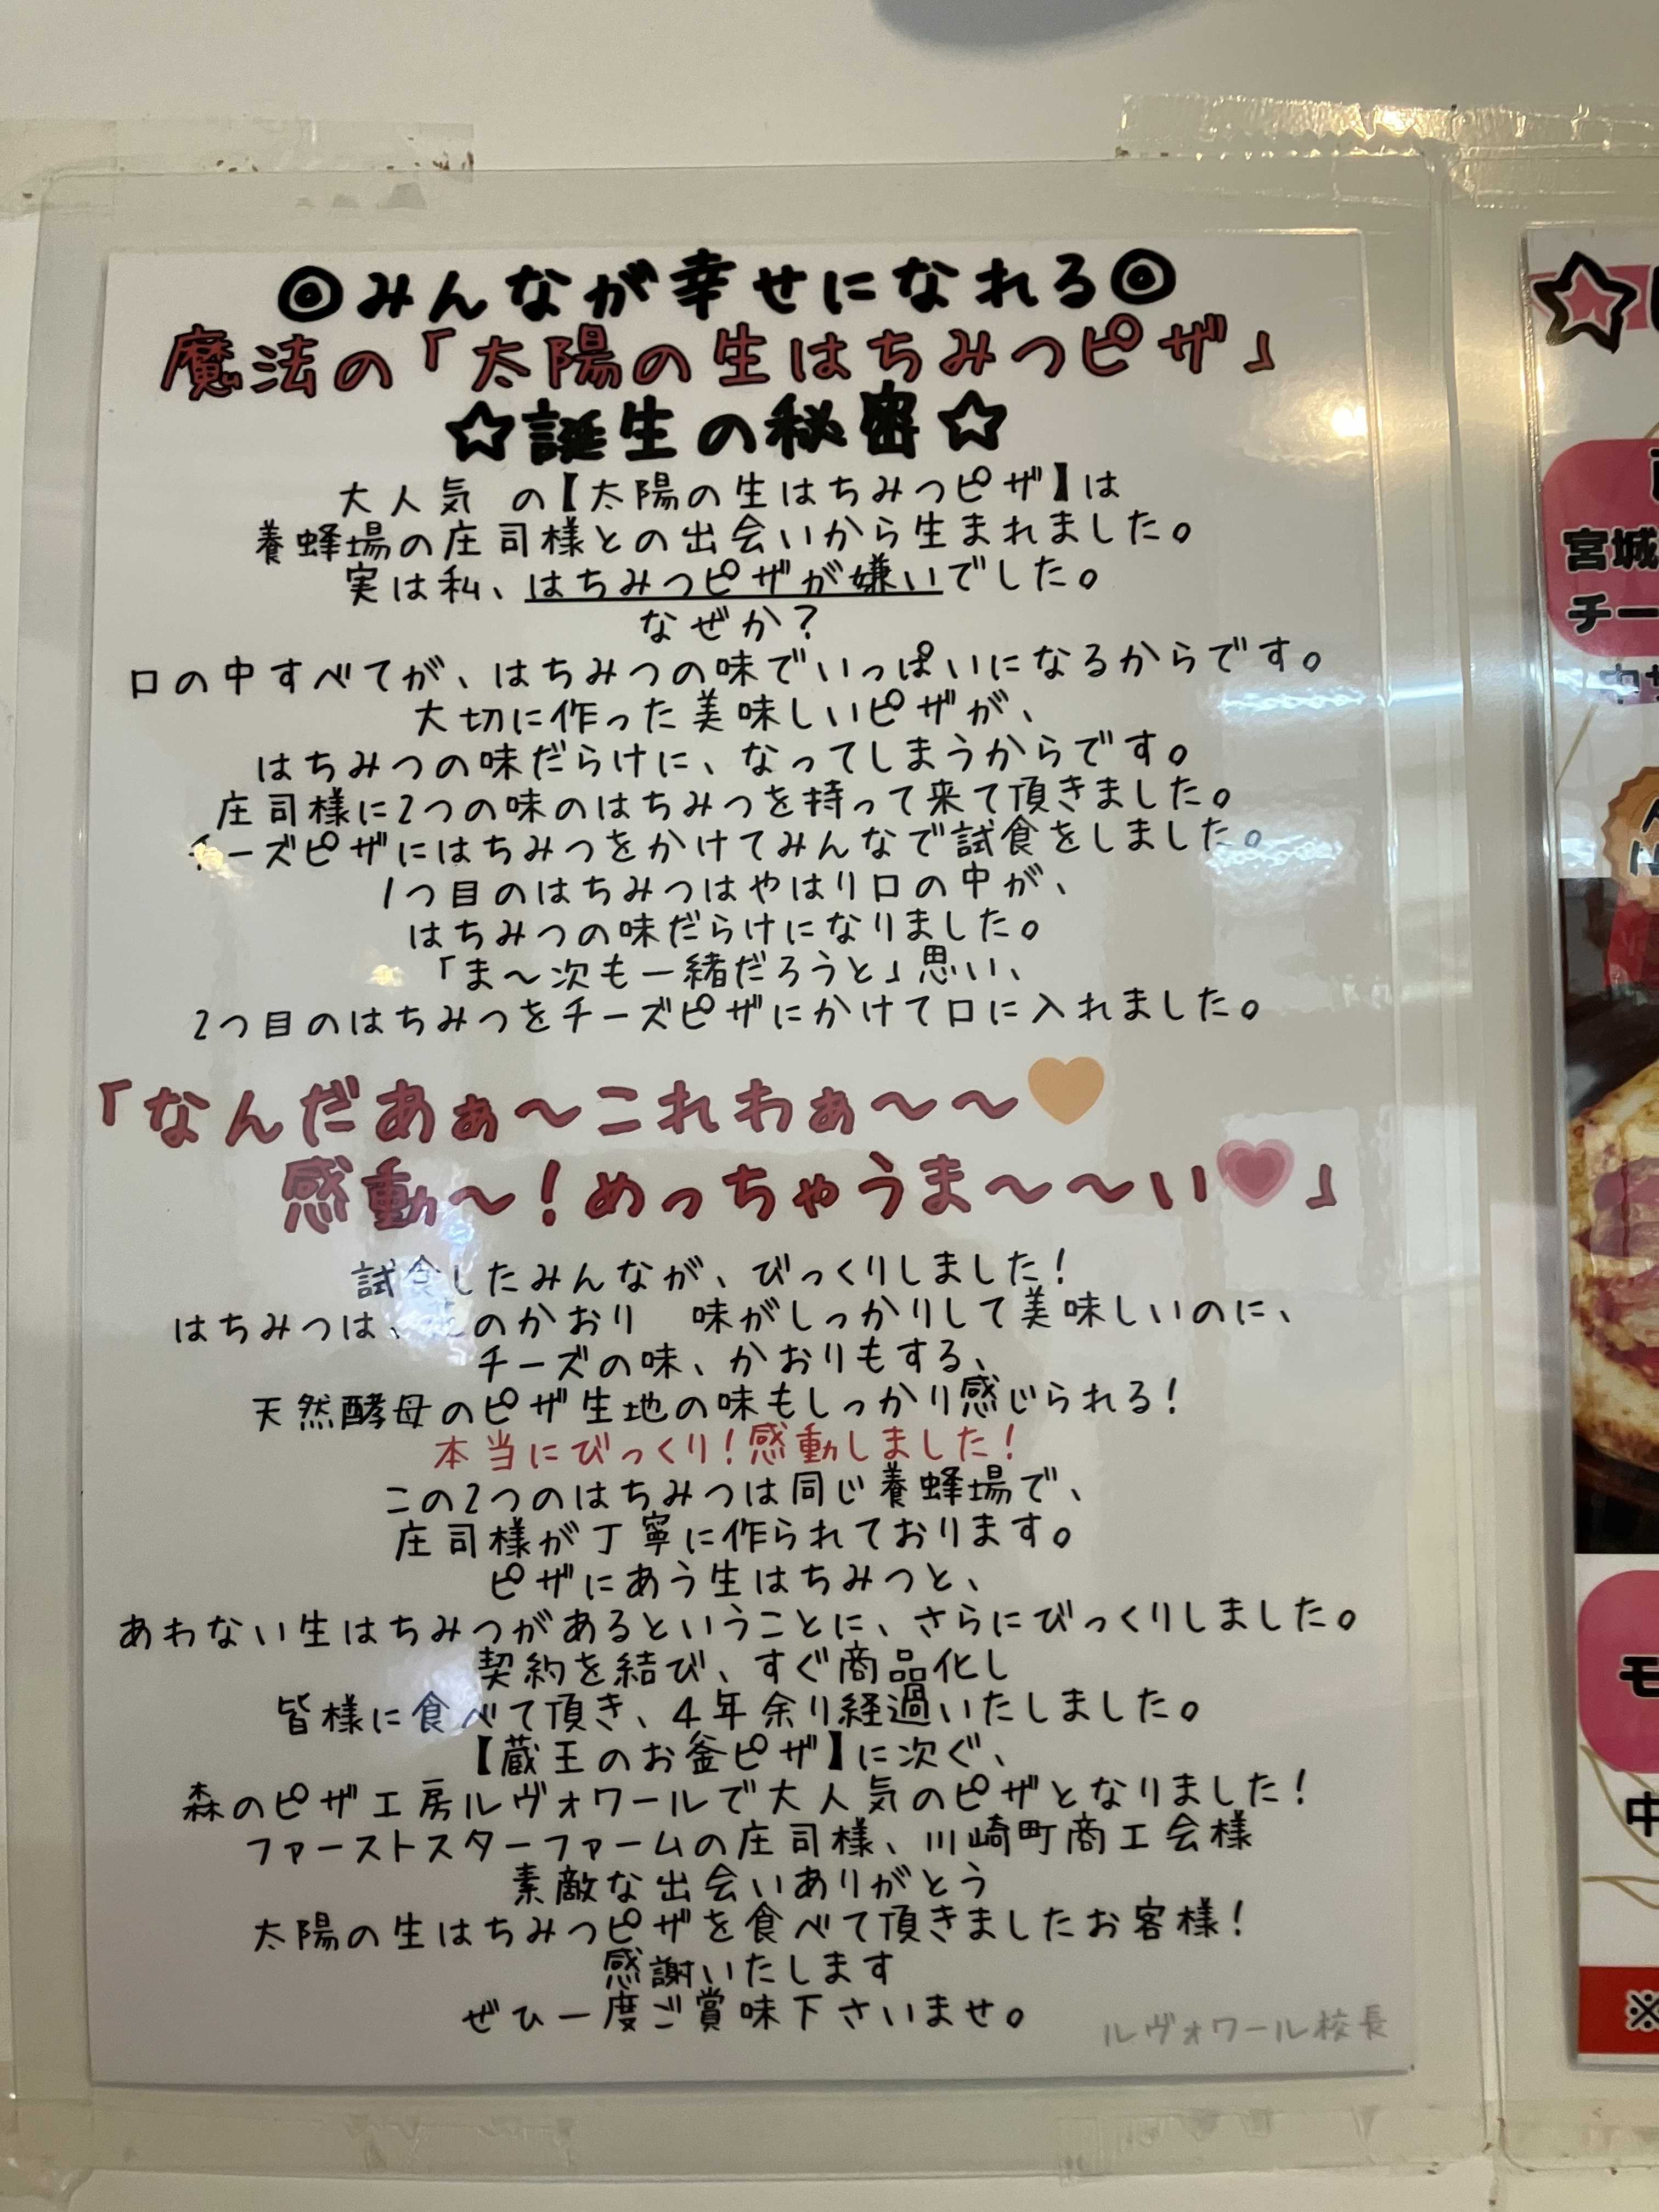 ◎みんなが幸せになれる◎
魔法の「太陽の生はちみつピザ」
☆誕生の秘密☆
大人気 の【太陽の生はちみつピザ】は
養蜂場の庄司様との出会いから生まれました。
実は私、はちみつピザが嫌いでした。
なぜか？
口の中すべてが、はちみつの味でいっぱいになるからです。
大切に作った美味しいピザが、
はちみつの味だらけに、なってしまうからです。
庄司様に2つの味のはちみつを持って来て頂きました。
チーズピザにはちみつをかけてみんなで試食をしました。
1つ目のはちみつはやはり口の中が、
はちみつの味だらけになりました。
「ま〜次も一緒だろうと」思い、
2つ目のはちみつをチーズピザにかけて口に入れました。
「なんだあぁ〜これわぁ〜〜🧡
感動〜！めっちゃうま〜〜い💗」
試食したみんなが、びっくりしました！
はちみつは、花のかおり　味がしっかりして美味しいのに、
チーズの味、かおりもする、
天然酵母のピザ生地の味もしっかり感じられる！
本当にびっくり！感動しました！
この2つのはちみつは同じ養蜂場で、
庄司様が丁寧に作られております。
ピザにあう生はちみつと、
あわない生はちみつがあるということに、さらにびっくりしました。
契約を結び、すぐ商品化し
皆様に食べて頂き、4年余り経過いたしました。
【蔵王のお釜ピザ】に次ぐ、
森のピザ工房ルヴォワールで大人気のピザとなりました！
ファーストスターファームの庄司様、川崎町商工会様
素敵な出会いありがとう
太陽の生はちみつピザを食べて頂きましたお客様！
感謝いたします
ぜひ一度ご賞味下さいませ。
ルヴォワール校長
☆
宮城
チー
モ
中
※